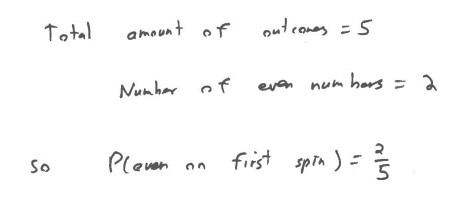 Total amount of outcomes = 5
Number of even numbers = 2
So P(even on first spin) = 2/5